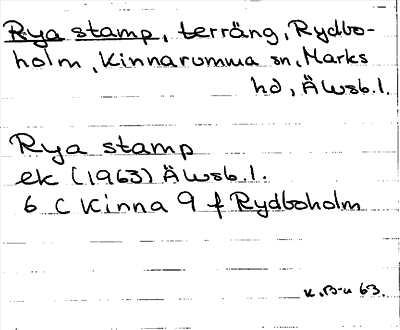 Rya stamp, terräng, Rydbo-
holm, Kinnarumma sn, Marks
hd, Äwsb.l.
Rya stamp
ek (1963) Äwsb.l.
6 C Kinna 9 f Rydboholm
K.B-u 63.